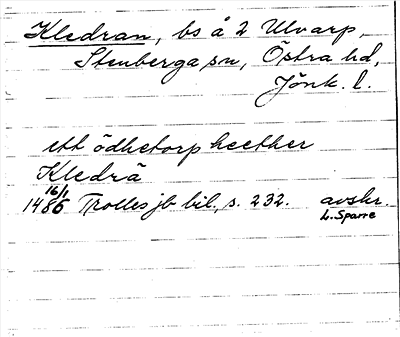 Kledran, bs å 2 Ulvarp,
Stenberga sn, Östra hd,
Jönk. l.
ett ödhetorp heether
Kledrä
16/1
1486 Trolles jb bil., s. 232. avskr.
L. Sparre